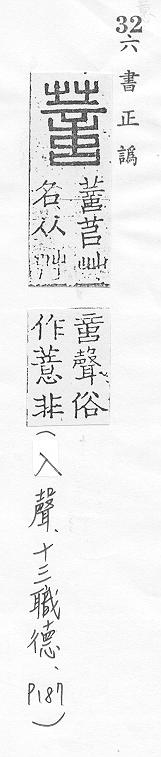 32
六書正譌
苢艸
名从艸
聲俗
作薏非
(入聲、十三職德、P187)